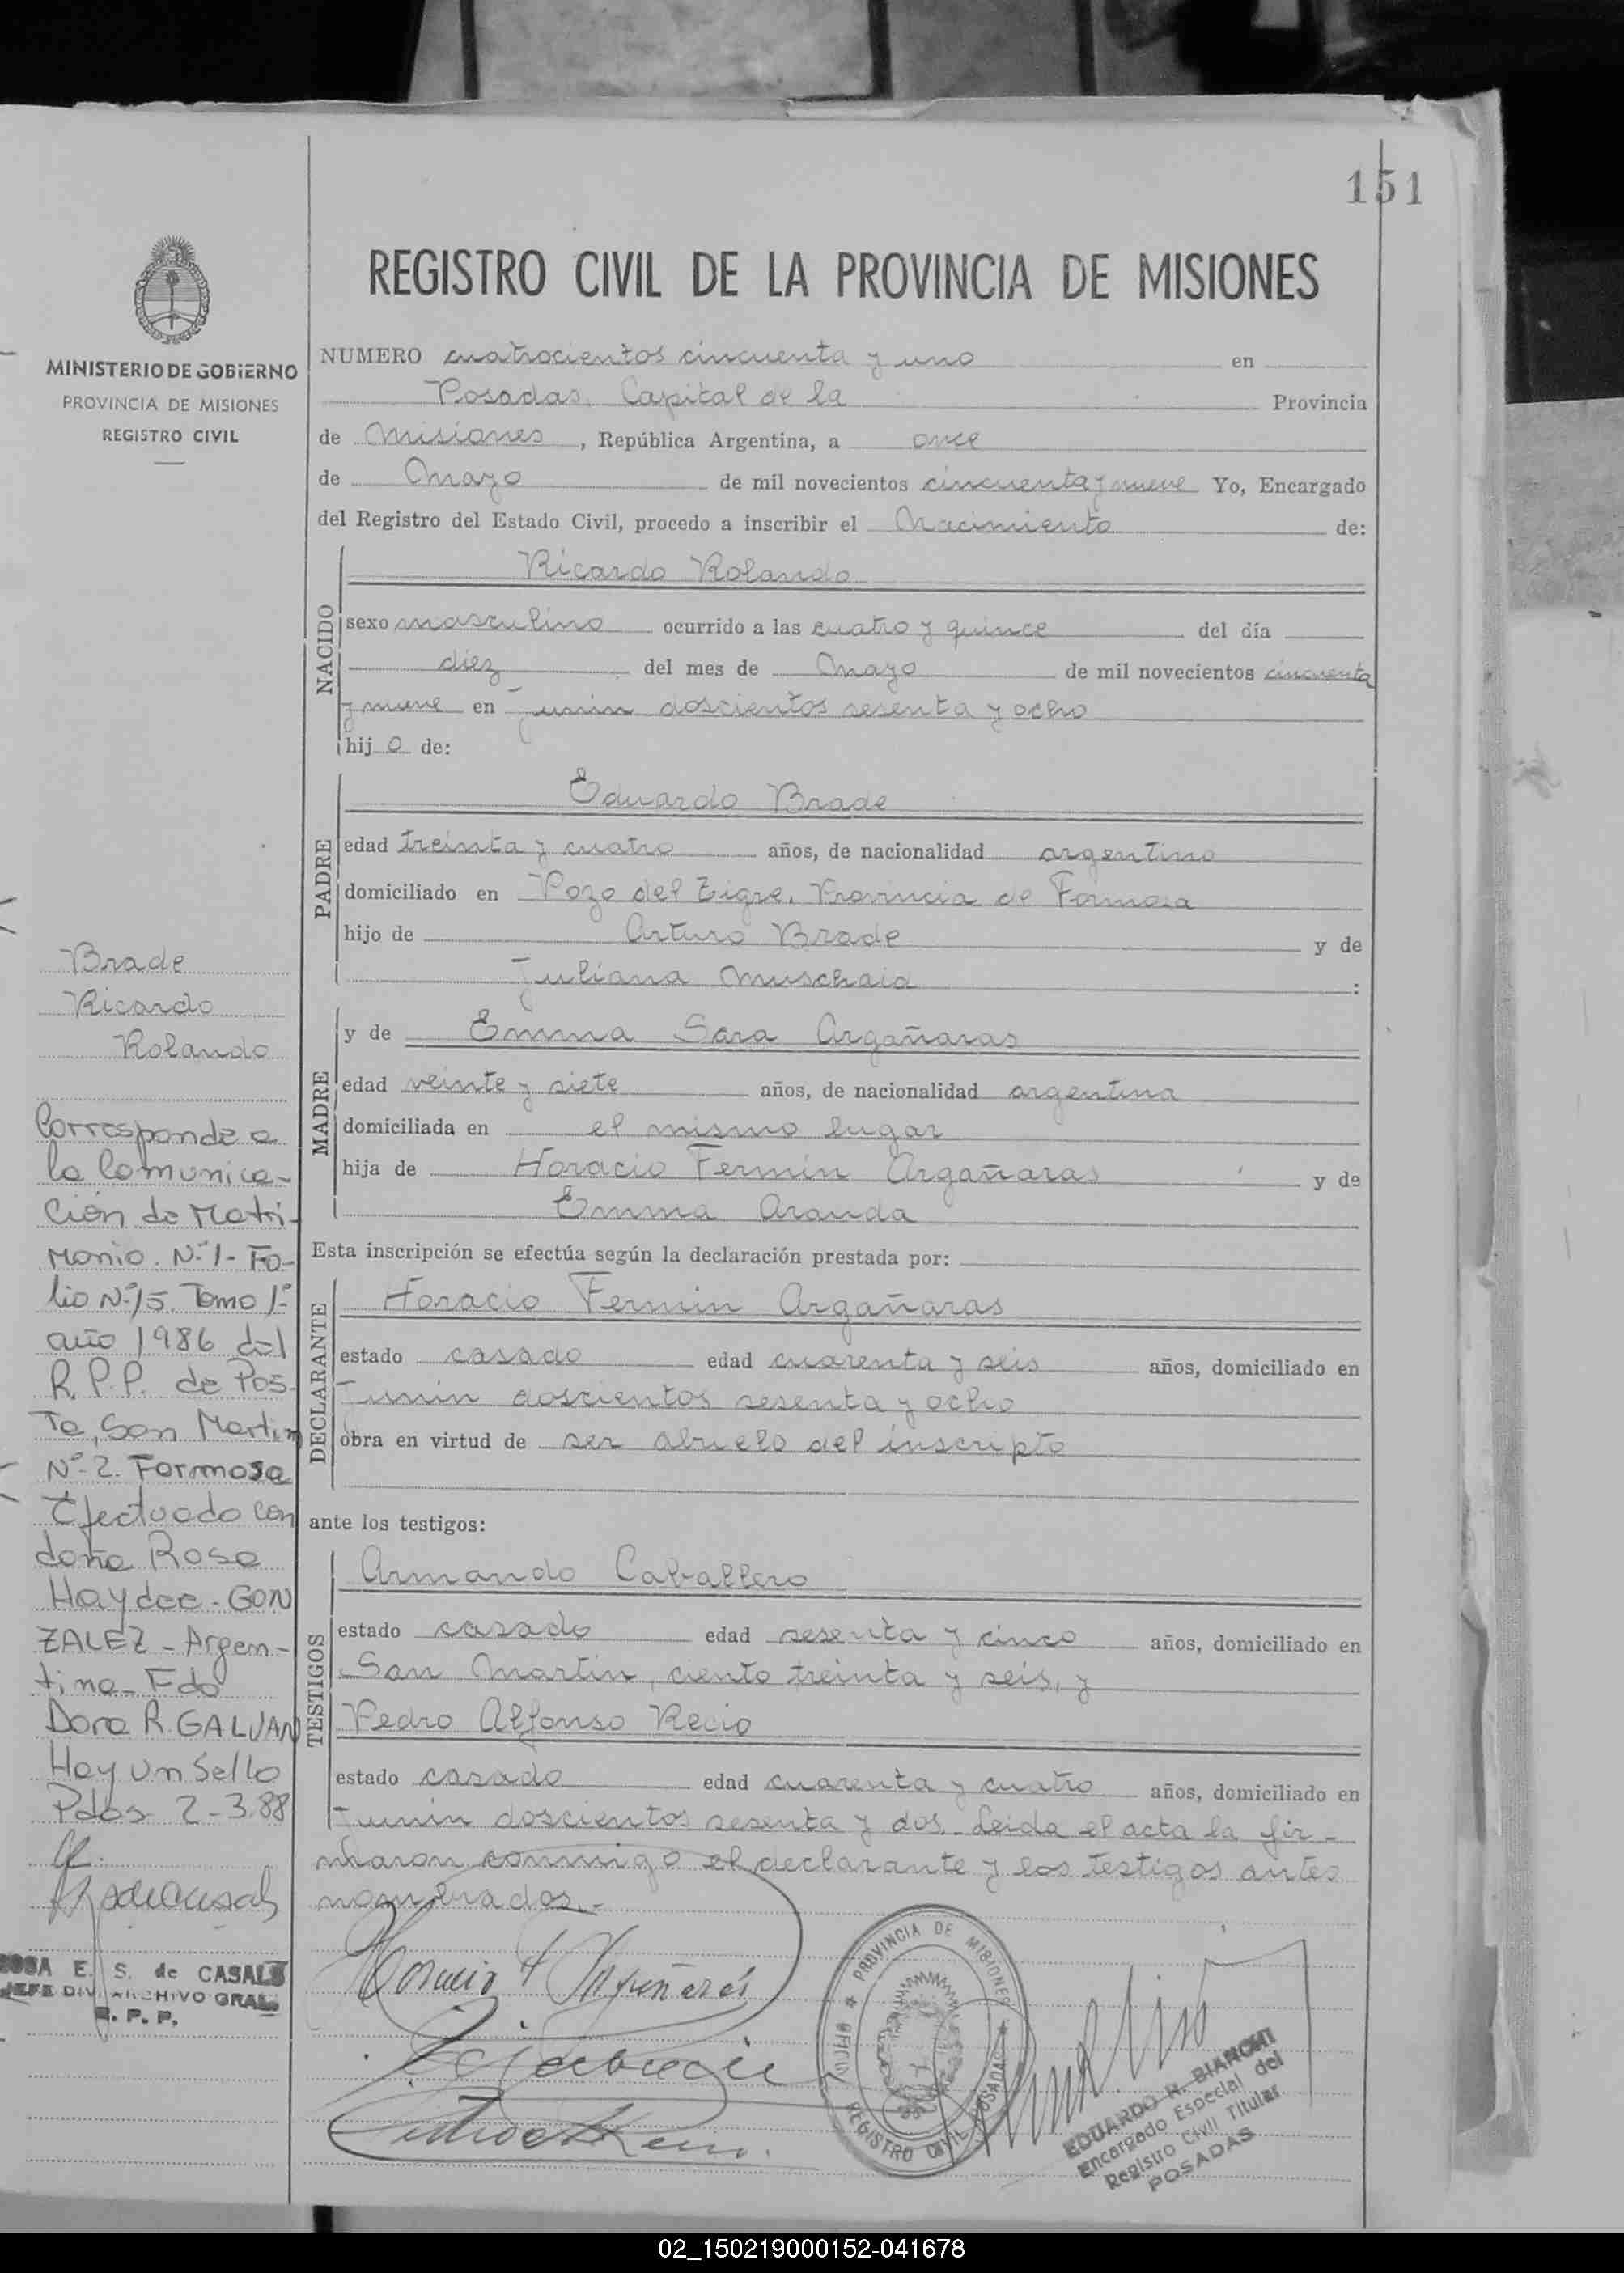 151
MINISTERIO DE GOBIERNO
PROVINCIA DE MISIONES
REGISTRO CIVIL
REGISTRO CIVIL DE LA PROVINCIA DE MISIONES
NUMERO cuatrocientos cincuenta y uno en
Posadas, Capital de la Provincia
de Misiones, República Argentina, a once
de Mayo de mil novecientos cincuenta y nueve Yo, Encargado
del Registro del Estado Civil, procedo a inscribir el Nacimiento de:
NACIDO
Ricardo Rolando
sexo masculino ocurrido a las cuatro y quince del día
diez del mes de Mayo de mil novecientos cincuenta
y nueve en Junin doscientos sesenta y ocho
hijo de:
PADRE
Eduardo Brade
edad treinta y cuatro años, de nacionalidad argentino
domiciliado en Pozo del Tigre, Provincia de Formosa
hijo de Arturo Brade y de
Juliana Muschaid :
MADRE
y de Emma Sara Argañaras
edad veinte y siete años, de nacionalidad argentina
domiciliada en el mismo lugar
hija de Horacio Fermin Argañaras y de
Emma Aranda
Esta inscripción se efectúa según la declaración prestada por:
DECLARANTE
Horacio Fermin Argañaras
estado casado edad cuarenta y seis años, domiciliado en
Junin doscientos sesenta y ocho
obra en virtud de ser abuelo del inscripto
ante los testigos:
TESTIGOS
Armando Caballero
estado casado edad sesenta y cinco años, domiciliado en
San Martin, ciento treinta y seis, y
Pedro Alfonso Recio
estado casado edad cuarenta y cuatro años, domiciliado en
Junin doscientos sesenta y dos.- Leida el acta la fir-
maron conmigo el declarante y los testigos antes
nombrados.-
Brade
Ricardo
Rolando
Corresponde a
la Comunica-
ción de Matri-
monio. Nº 1- Fo-
lio Nº 15. Tomo 1º
año 1986 del
R.P.P. de Pos-
Te, San Martin
Nº 2. Formosa
Efectuado con
doña Rosa
Haydee - GON
ZALEZ - Argen-
tina - Fdo
Dora R. GALVAN
Hay un Sello
Pdas 2-3-88
ROSA E. S. de CASALS
JEFE DIV. ARCHIVO GRAL.
R. P. P.
PROVINCIA DE MISIONES
REGISTRO CIVIL POSADAS
EDUARDO R. BIANCHI
Encargado Especial del
Registro Civil Titular
POSADAS
02_150219000152-041678